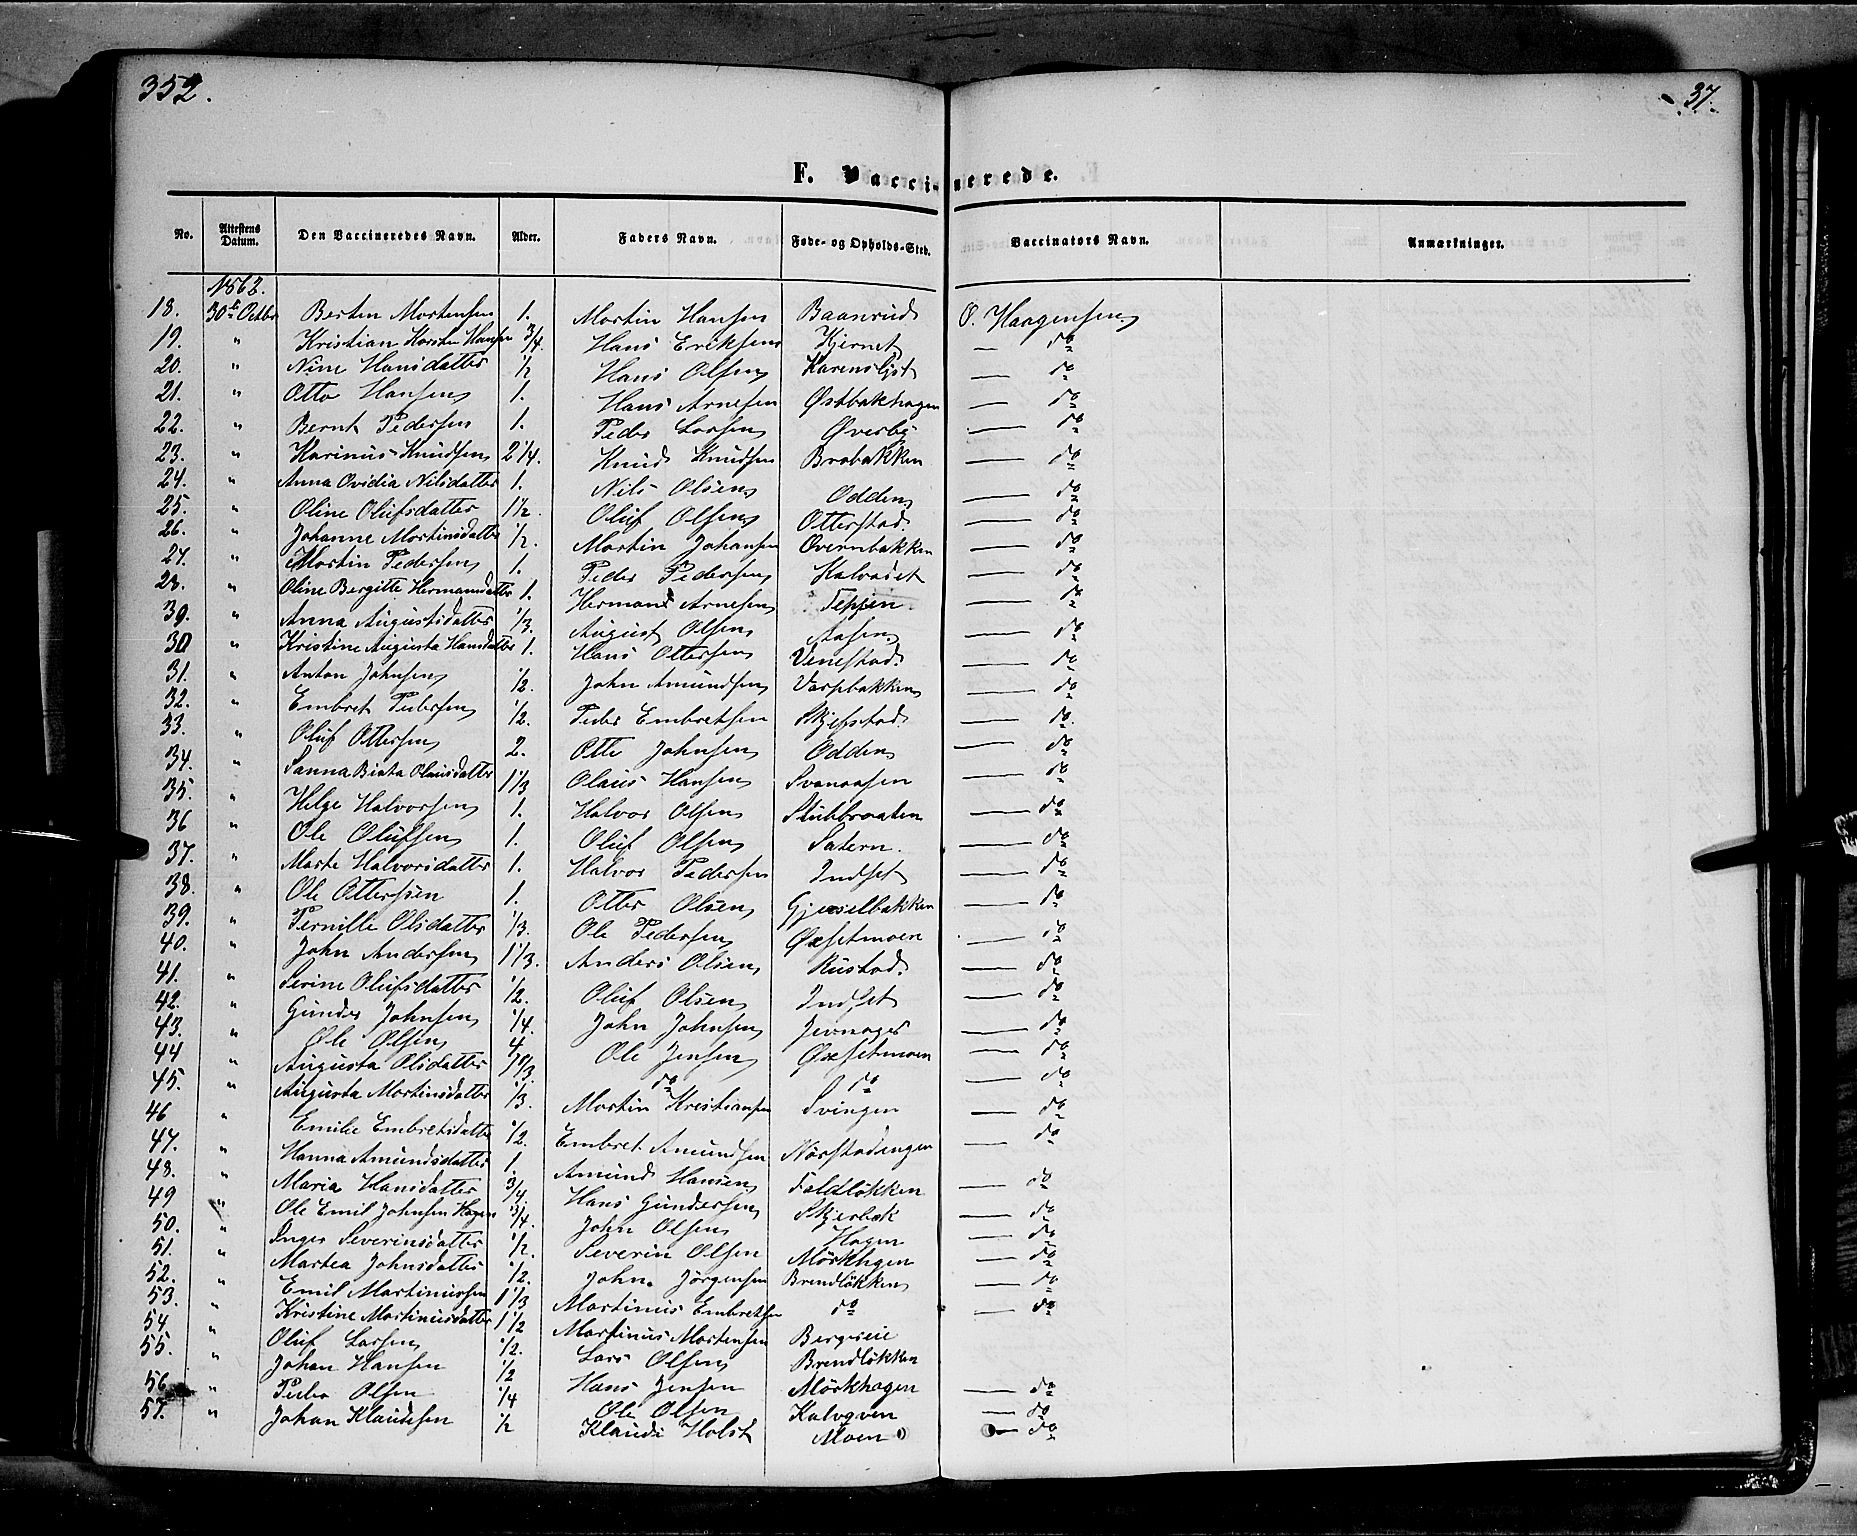 352.
37.
F. Vaccinerede.
No. Attestens Datum. Den Vaccineredes Navn. Alder. Faders Navn. Føde- og Opholds-Sted. Vaccinators Navn. Anmærkninger.
1862.
18. 30te Octbr Berten Mortensen 1. Mortin Hansen Baanrud O. Haagensen
19. " Kristian Karsten Hansen 3/4. Hans Eriksen Kjernet — do
20. " Nine Hansdatter 1/2 Hans Olsen Karenslyst — do
21. " Otto Hansen 1. Hans Arnesen Østbakhagen — do
22. " Bernt Pedersen 1. Peder Larsen Øverby — do
23. " Karinus Knudsen 2 1/4. Knud Knudsen Brobakken — do
24. " Anna Ovidia Nilsdatter 1. Nils Olsen Odden — do
25. " Oline Olufsdatter 1 1/2. Oluf Olsen Otterstad. — do
26. " Johanne Mortinsdatter 1/2. Mortin Johansen Overnbakken — do
27. " Mortin Pedersen 1. Peder Pedersen Kalvaset — do
28. " Oline Bergitte Hermansdatter 1. Herman Arnesen Teppen — do
39. " Anna Augustsdatter 1/3. August Olsen Aasen — do
30 " Kristine Augusta Hansdatter 1. Hans Ottersen Venestad. — do
31. " Anton Johnsen 1/2. John Amundsen Varpebakken — do
32. " Embret Pedersen 1/2. Peder Embretsen Skjefstad — do
33. " Oluf Ottersen 2. Otte Johnsen Odden — do
34. " Sanna Beata Olausdatter 1 1/3 Olaus Hansen Svenaasen — do
35. " Helge Halvorsen 1. Halvor Olsen Stubbraaten — do
36 " Ole Olufsen 1. Oluf Olsen Satern. — do
37. " Marte Halvorsdatter 1. Halvor Pedersen Indset — do
38. " Ole Ottersen 1. Otter Olsen Gjeselbakken — do
39. " Pernille Olsdatter 1/3. Ole Pedersen Øxsetmoen — do
40. " John Andersen 1 1/3. Anders Olsen Rustad. — do
41. " Serine Olufsdatter 1/2. Oluf Olsen Indset — do
42. " Gunder Johnsen 1/4. John Johnsen Jevnager — do
43. " Ole Olsen 4 Ole Jensen Øxsetmoen — do
44 " Augusta Olsdatter do do — do
45. " Augusta Mortinsdatter 1/3. Mortin Kristiansen Svingen — do
46 " Emilie Embretsdatter 1/2. Embret Amundsen Nørstadengen — do
47. " Hanna Amundsdatter 1. Amund Hansen Foldløkken — do
48. " Maria Hansdatter 3/4. Hans Gundersen Skjerbek — do
49 " Ole Emil Johnsen Hagen 3/4. John Olsen Hagen — do
50. " Inger Severinsdatter 1/2. Severin Olsen Mörkhagen — do
51. " Martea Johnsdatter 1/2. John Jörgensen Brendlökken — do
52. " Emil Martinussen 1 1/3 Martinus Embretsen do — do
53. " Kristine Martinusdatter 1 1/2 Martinus Mortensen Bergeseie
54 " Oluf Larsen 1/2. Lars Olsen Brendlökken
55. " Johan Hansen 1/2 Hans Jensen Mörkhagen — do
56 " Peder Olsen 1/4 Ole Olsen Kalvqven — do
57. " Johan Klaudesen 1/2 Klaude Holst Moen — do